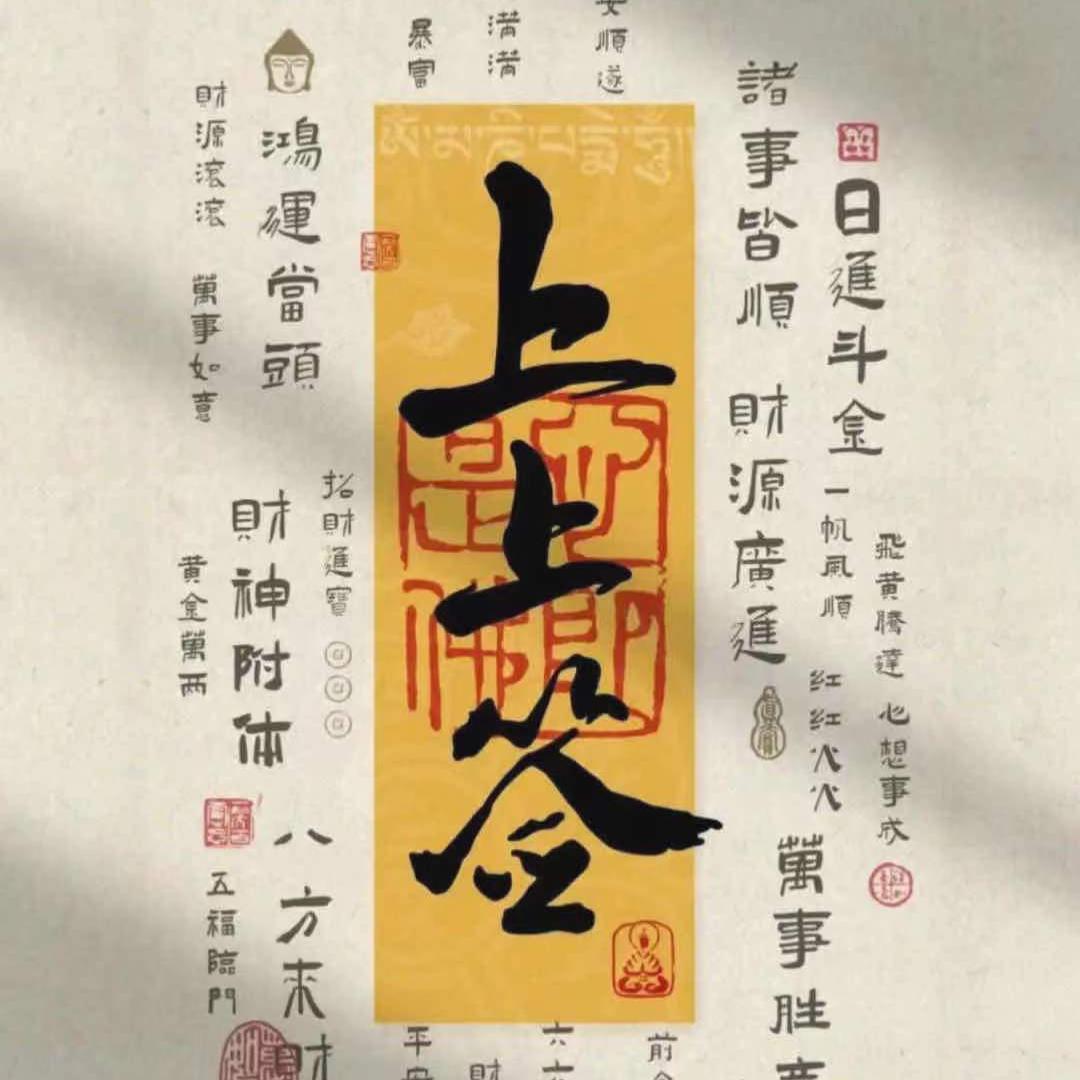 上上签
ༀ་མ་ཎི་པདྨེ་ཧཱུྃ
心即是佛
暴富
满满
安順遂
諸事皆順
財源廣進
日進斗金
一帆風順
飛黄騰達
心想事成
红红火火
萬事胜意
鴻運當頭
財源滚滚
萬事如意
招財進寶
財神附体
黄金萬两
八方来財
五福臨門
平安
財
六六
前